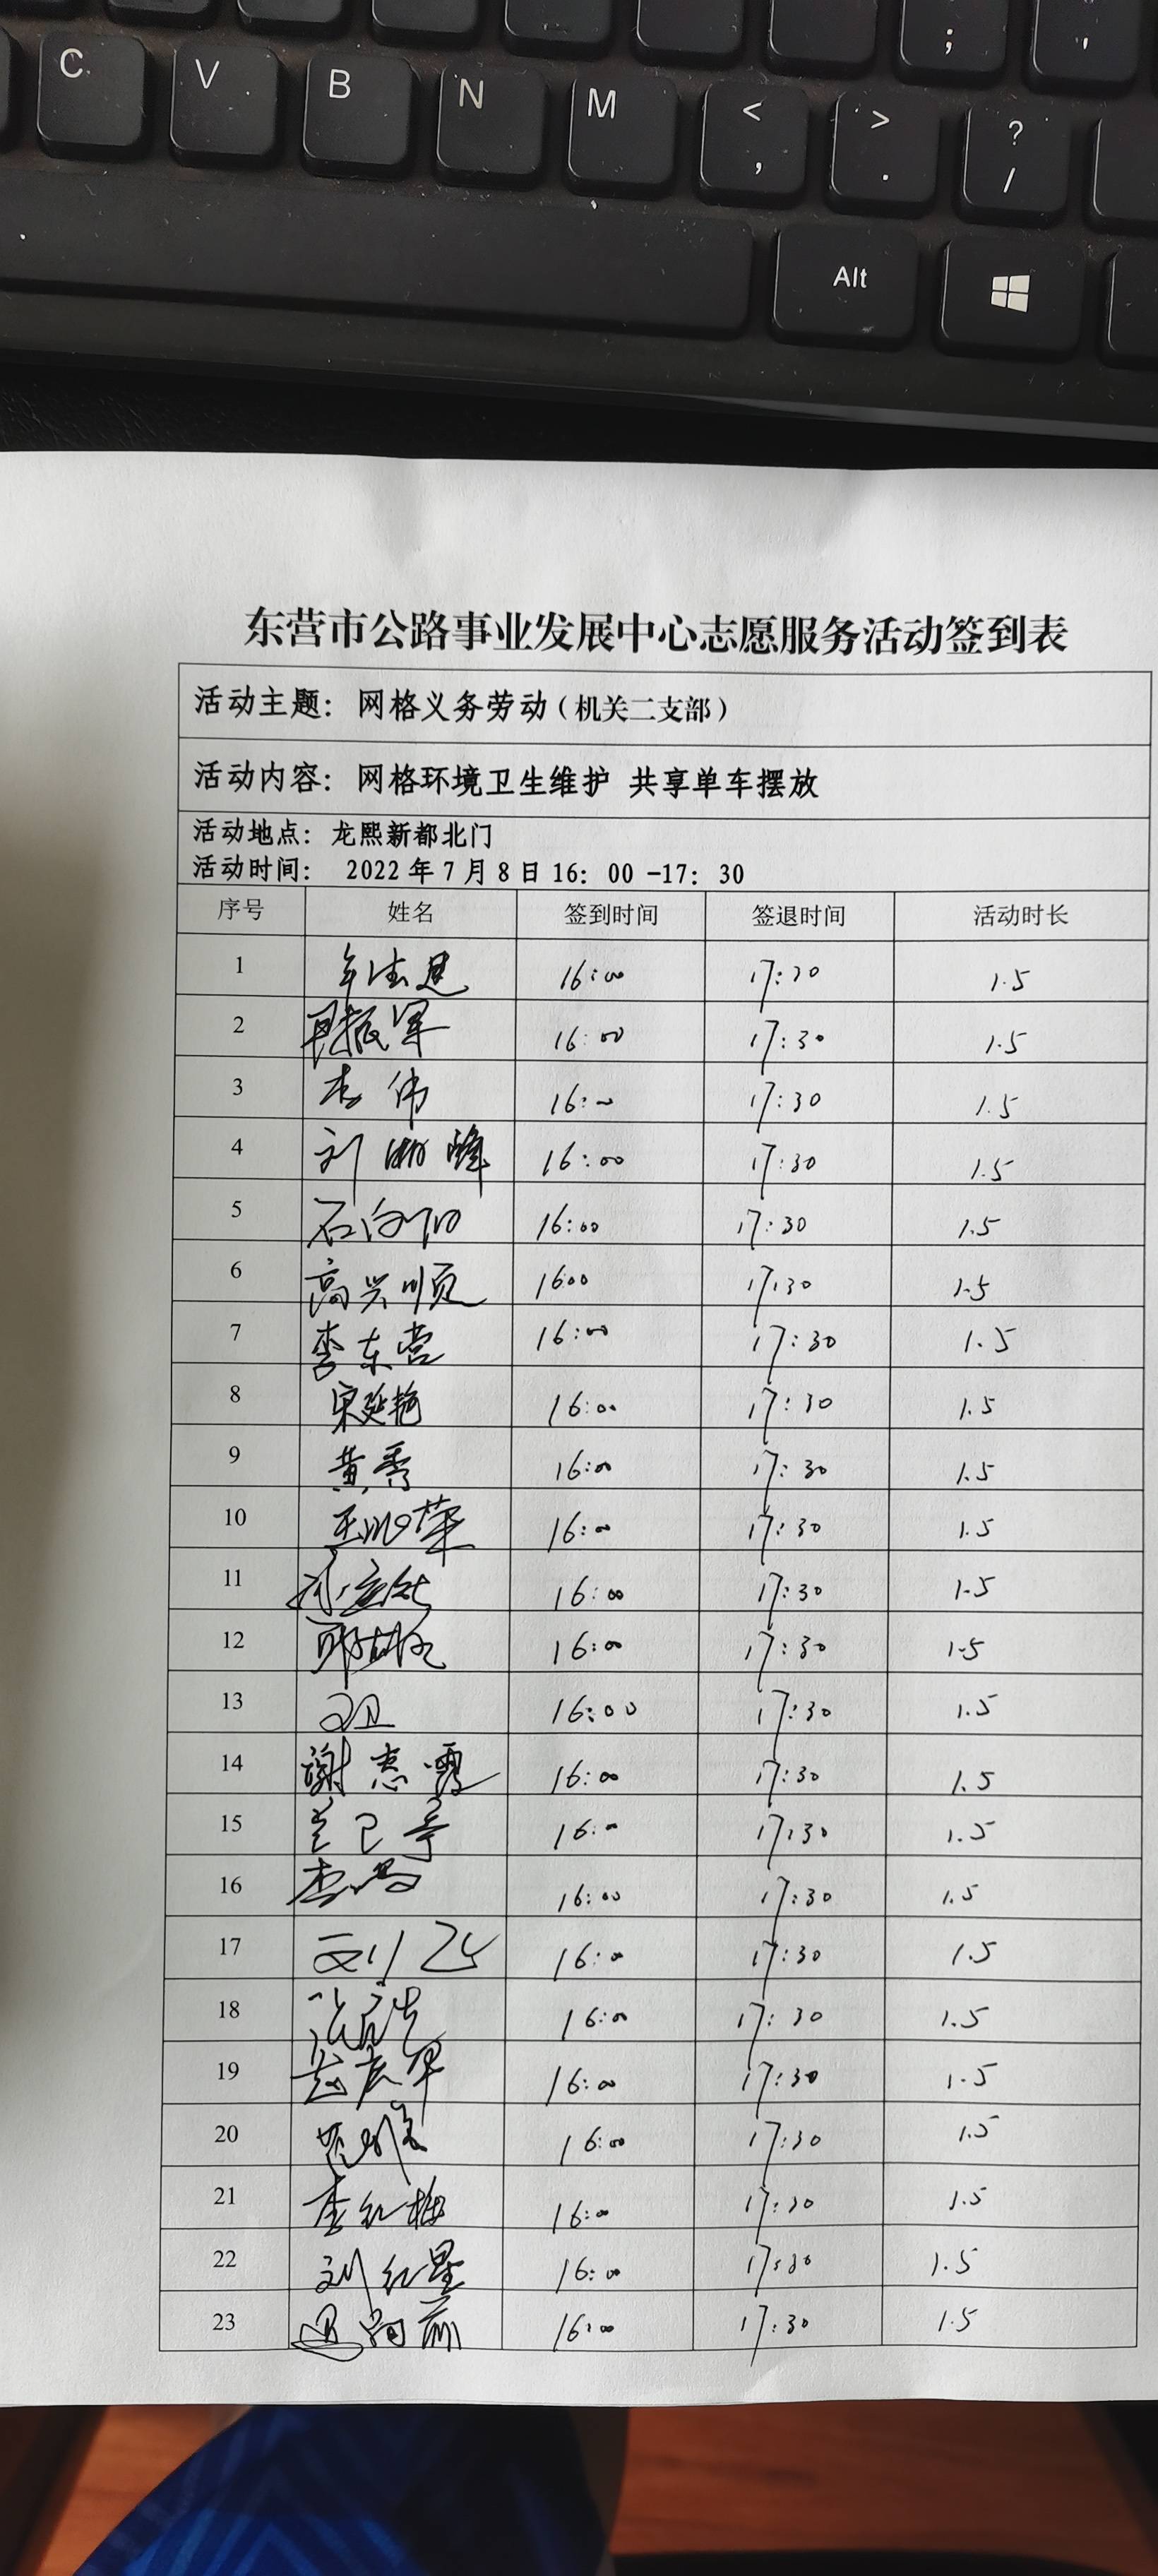 C V B N M < ,  > . ? /
;
Alt
东营市公路事业发展中心志愿服务活动签到表
活动主题：网格义务劳动（机关二支部）
活动内容：网格环境卫生维护 共享单车摆放
活动地点：龙熙新都北门
活动时间： 2022年7月8日16：00-17：30
序号 姓名 签到时间 签退时间 活动时长
1 16:00 17:30 1.5
2 16:00 17:30 1.5
3 李伟 16:00 17:30 1.5
4 16:00 17:30 1.5
5 石向阳 16:00 17:30 1.5
6 高兴顺 16:00 17:30 1.5
7 李东营 16:00 17:30 1.5
8 宋延艳 16:00 17:30 1.5
9 黄秀 16:00 17:30 1.5
10 16:00 17:30 1.5
11 16:00 17:30 1.5
12 16:00 17:30 1.5
13 16:00 17:30 1.5
14 谢志霞 16:00 17:30 1.5
15 16:00 17:30 1.5
16 16:00 17:30 1.5
17 刘飞 16:00 17:30 1.5
18 16:00 17:30 1.5
19 16:00 17:30 1.5
20 16:00 17:30 1.5
21 李红梅 16:00 17:30 1.5
22 刘红星 16:00 17:30 1.5
23 16:00 17:30 1.5